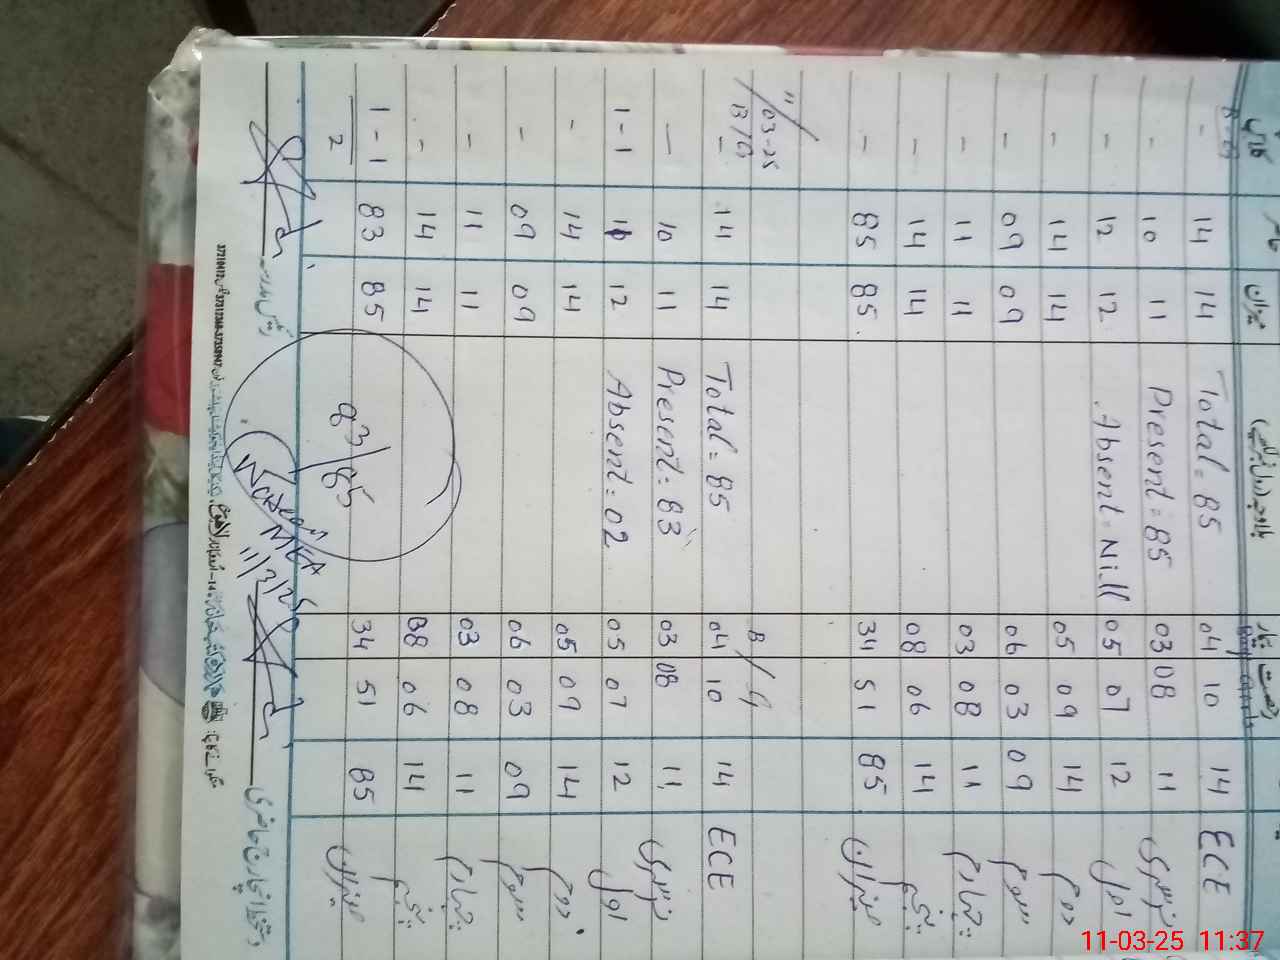 B-G حاضر میزان
- 14 14 Total = 85 04 10 14 ECE
- 10 11 Present = 85 03 08 11 نرسری
- 12 12 Absent = Nill 05 07 12 اول
- 14 14 05 09 14 دوم
- 09 09 06 03 09 سوم
- 11 11 03 08 11 چہارم
- 14 14 08 06 14 پنجم
- 85 85 34 51 85 میزان
11/03-25
B/G B/G
- 14 14 Total = 85 04 10 14 ECE
- 10 11 Present = 83 03 08 11 نرسری
1-1 12 Absent = 02 05 07 12 اول
- 14 14 05 09 14 دوم
- 09 09 06 03 09 سوم
- 11 11 03 08 11 چہارم
- 14 14 06 14 پنجم
1-1 83 85 34 51 85 میزان
2
83/85
MEA
11/3/25
دستخط انچارج حاضری
11-03-25 11:37